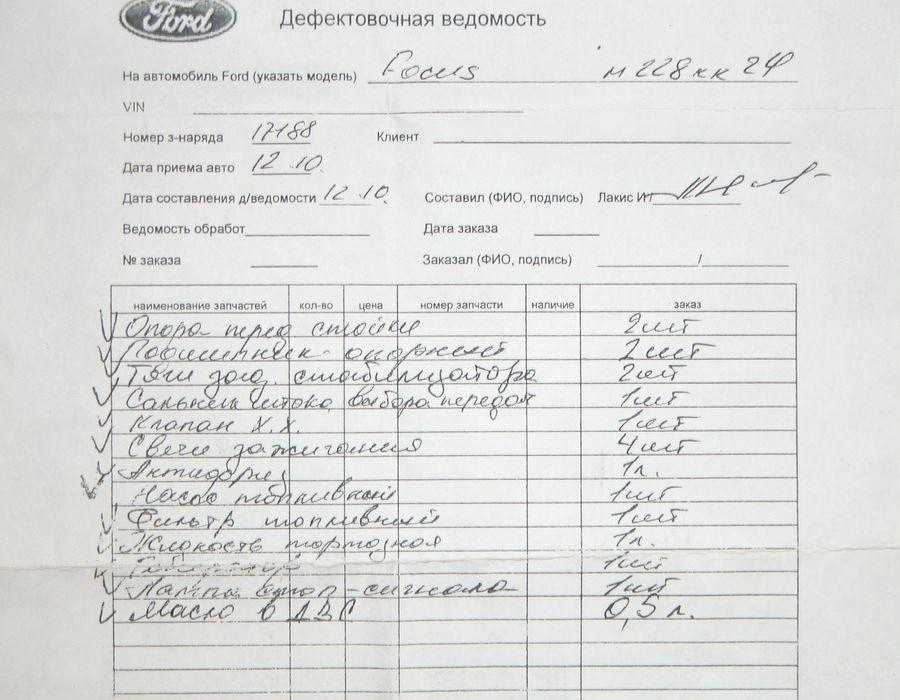 Ford
Дефектовочная ведомость
На автомобиль Ford (указать модель) Focus м228кк 24
VIN
Номер з-наряда 17188 Клиент
Дата приема авто 12.10.
Дата составления д/ведомости 12.10. Составил (ФИО, подпись) Лакис ИТ
Ведомость обработ Дата заказа
№ заказа Заказал (ФИО, подпись) /
наименование запчастей кол-во цена номер запчасти наличие заказ
Опора перед стойки 2шт
Подшипник опорный 2шт
Тяги зад. стабилизатора 2шт
Сальник штока выбора передач 1шт
Клапан Х.Х. 1шт
Свечи зажигания 4шт
Антифриз 1л.
Насос топливный 1шт
Фильтр топливный 1шт
Жидкость тормозная 1л.
1шт
Лампа стоп-сигнала 1шт
Масло в ДВС 0,5л.